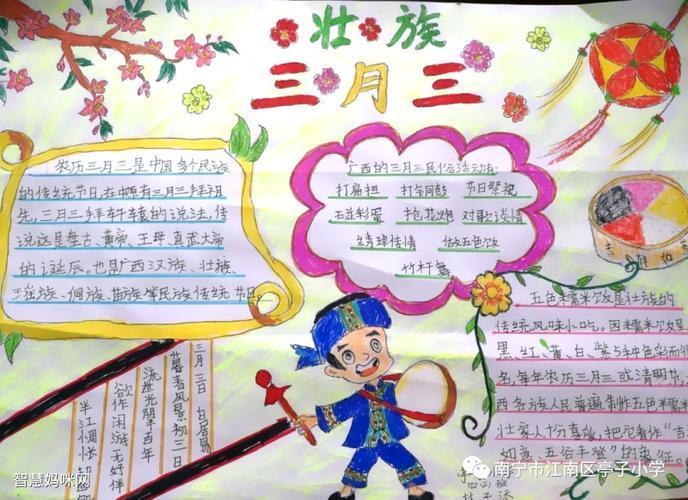 壮族
三月三
农历三月三是中国多个民族
的传统节日,在中原有三月三拜祖
先,三月三拜轩辕的说法,传
说这是盘古、黄帝、王母、真武大帝
的诞辰,也是广西汉族、壮族、
瑶族、侗族、苗族等民族传统节日。
广西的三月三民俗活动:
打扁担 打年同鼓 节日祭祝
碰彩蛋 抢花炮 对歌谈情
绣球传情 做五色饭
竹杆舞
五色糯米饭是壮族的
传统风味小吃。因糯米饭呈
黑、红、黄、白、紫5种色彩而得
名,每年农历三月三或清明节,
西各族人民普遍制作五色糯米
壮家人十分喜爱,把它看作"吉
如意、五谷丰登"的象征。
三月三日 白居易
暮春风景初三日
流世光阴半百年
欲作闲游无好伴
半江惆怅却
四
班
智慧妈咪网
南宁市江南区亭子小学